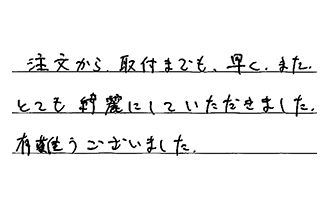 注文から、取付までも、早く、また、
とても綺麗にしていただきました。
有難うございました。